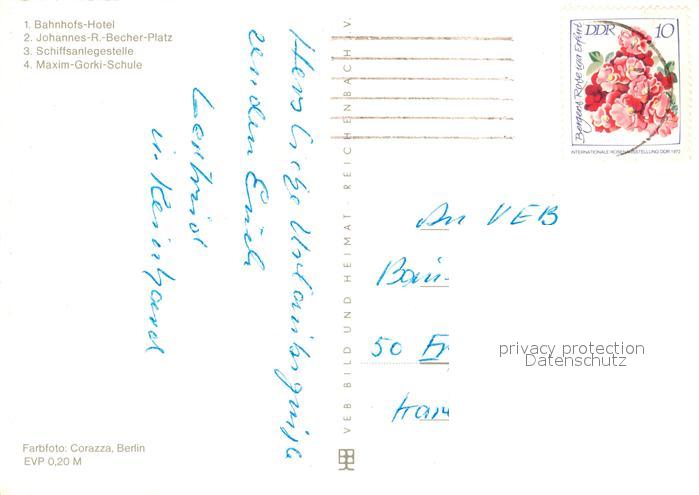 1. Bahnhofs-Hotel
2. Johannes-R.-Becher-Platz
3. Schiffsanlegestelle
4. Maxim-Gorki-Schule
Herzliche Urlaubsgrüße
senden Euch
in Reinhard
VEB BILD UND HEIMAT · REICHENBACH V.
DDR 10
Bergers Rose iga Erfurt
INTERNATIONALE ROSENAUSSTELLUNG DDR 1972
An VEB
Bau-
50 Er
privacy protection
Datenschutz
Farbfoto: Corazza, Berlin
EVP 0,20 M